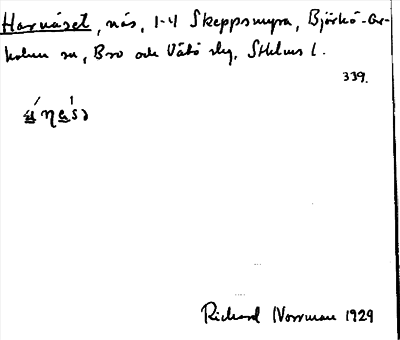 Harnäset, näs, 1-4 Skeppsmyra, Björkö-Ar-
holma sn, Bro och Vätö slg, Sthlms l.
339.
Richard Norrman 1929